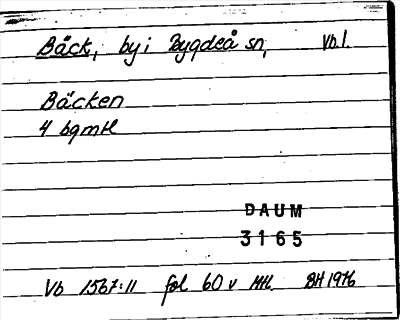 Bäck, by i Bygdeå sn, Vb.l.
Bäcken
4 bgmtl
DAUM
3165
Vb 1567:11 fol 60 v BH 1976